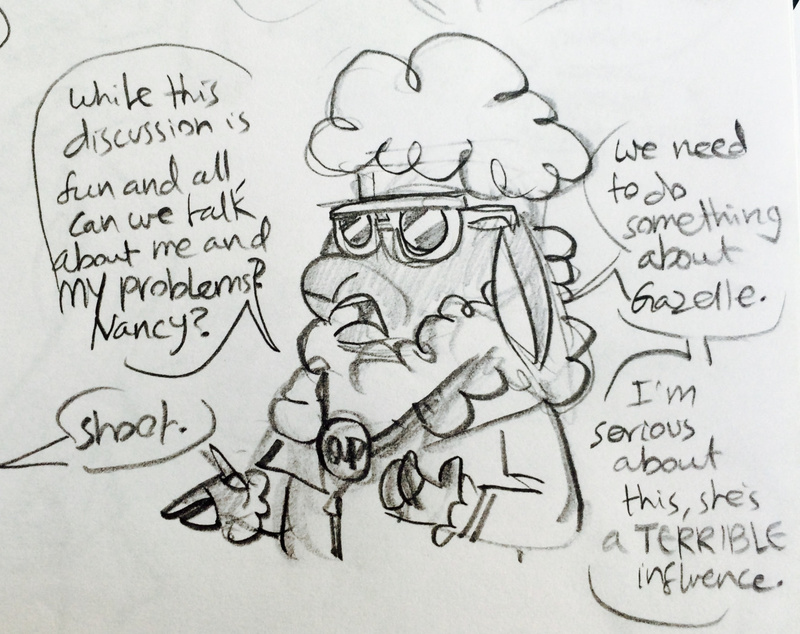 While this
discussion is
fun and all,
can we talk
about me and
MY problems?
Nancy?
Shoot.
We need
to do
something
about
Gazelle.
I'm
serious
about
this, she's
a TERRIBLE
influence.